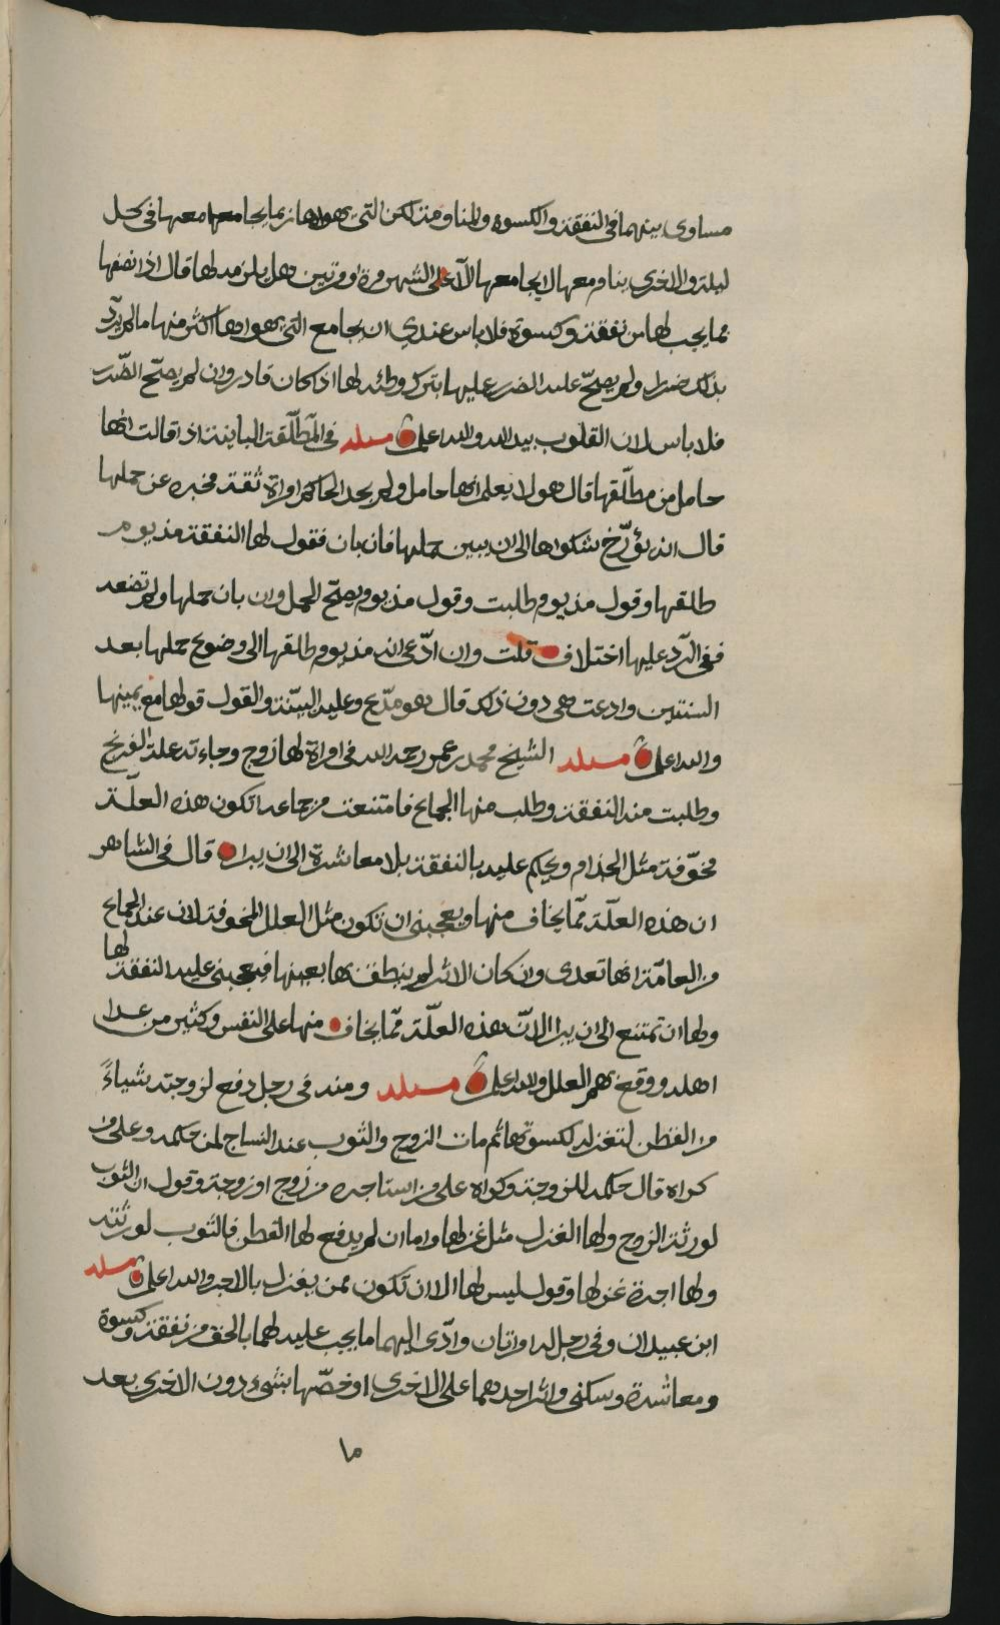 مساوي بينهما في النفقة والكسوة والمنا ومنه لكن التي يهواها ربما يجامعها معها في كل
ليلة والاخرى ينام معها لا يجامعها الا على الشهر مرة او مرتين هل يلزمه لها قال اذا انصفها
مما يجب لها من نفقة وكسوة فلا باس عندي ان يجامع التي يهواها اكثر منها ما لم يرد
بذلك ضررا ولم يصح عليه الضرر عليها بترك وطئه لها اذا كان قادر وان لم يصح الضرر
فلا باس لان القلوب بيد الله والله اعلم مسئلة في المطلقة الباينة اذا قالت انها
حامل من مطلقها قال هو لا يعلم انها حامل ولم يجد الحاكم امراة ثقة مخبره عن حملها
قال انه يؤرخ شكواها الى ان يبين حملها فان بان فقول لها النفقة مذ يوم
طلقها وقول مذ يوم طلبت وقول مذ يوم يصح الحمل وان بان حملها ولم تضعه
ففي الرد عليها اختلاف قلت وان ادعى انه مذ يوم طلقها الى وضوح حملها بعد
السنتين وادعت هي دون ذلك قال هو مدع وعليه البينة والقول قولها مع يمينها
والله اعلم مسئلة الشيخ محمد بن عمر رحمه الله في امراة لها زوج وجاءته علة الفرنج
وطلبت منه النفقة وطلب منها الجماع فامتنعت من جماعه اتكون هذه العلة
مخوفة مثل الجذام ويحكم عليه بالنفقة بلا معاشرة الى ان يبرا قال في الشاهر
ان هذه العلة مما يخاف منها ويعجبني ان تكون مثل العلل المخوفة لان عند الجماع
من العامة انها تعدي وان كان الاثر لم ينطق بها بعينها فيعجبني عليه النفقة لها
ولها ان تمتنع الى ان يبرا لان هذه العلة مما يخاف منها على النفس وكثير من عدا
اهله ووقع بهم العلل والله اعلم مسئلة ومنه في رجل دفع لزوجته شياءً
من القطن لتغزله لكسوتها ثم مات الزوج والثوب عند النساج لمن حكمه وعلى من
كراه قال حكمه للزوجة وكراه على من استاجره من زوج او زوجة وقول ان الثوب
لورثة الزوج ولها الغزل مثل غزلها واما ان لم يدفع لها القطن فالثوب لورثته
ولها اجرة غزلها وقول ليس لها الا ان تكون ممن يغزل بالاجر والله اعلم مسئلة
ابن عبيدان وفي رجل له امراتان وادى اليهما ما يجب عليه لهما بالحق من نفقة وكسوة
ومعاشرة وسكنى واثر احدهما على الاخرى او خصها بشيء دون الاخرى بعد
ما